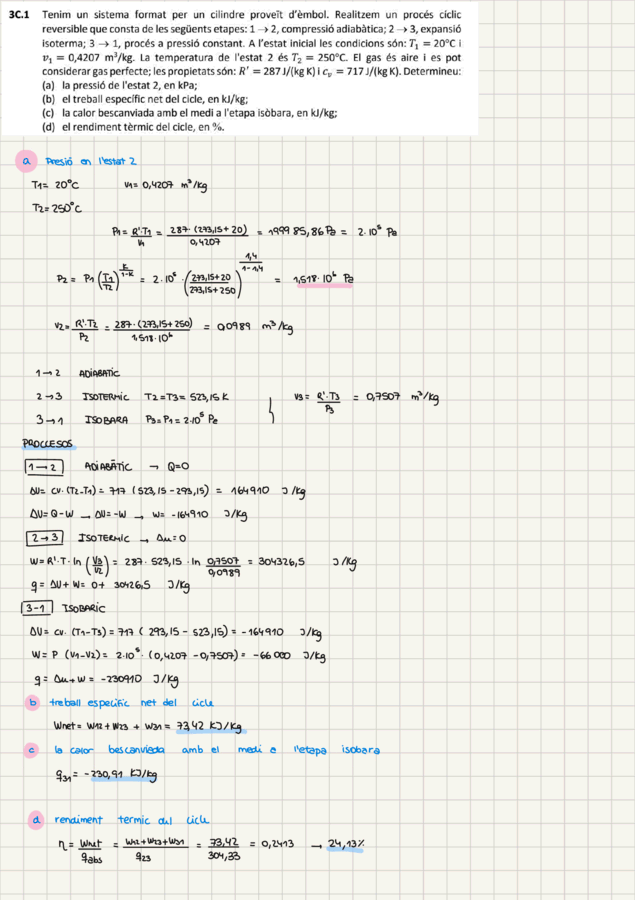 3C.1 Tenim un sistema format per un cilindre proveït d'èmbol. Realitzem un procés cíclic
reversible que consta de les següents etapes: 1 → 2, compressió adiabàtica; 2 → 3, expansió
isoterma; 3 → 1, procés a pressió constant. A l'estat inicial les condicions són: T₁ = 20°C i
v₁ = 0,4207 m³/kg. La temperatura de l'estat 2 és T₂ = 250°C. El gas és aire i es pot
considerar gas perfecte; les propietats són: R' = 287 J/(kg K) i cᵥ = 717 J/(kg K). Determineu:
(a) la pressió de l'estat 2, en kPa;
(b) el treball específic net del cicle, en kJ/kg;
(c) la calor bescanviada amb el medi a l'etapa isòbara, en kJ/kg;
(d) el rendiment tèrmic del cicle, en %.
a Presió en l'estat 2
T1= 20°C V1= 0,4207 m³/kg
T2= 250°C
P1= R'·T1/V1 = 287·(273,15+20)/0,4207 = 199985,86 Pa = 2·10⁵ Pa
P2 = P1 (T1/T2)^(K/1-K) = 2·10⁵ · (273,15+20/273,15+250)^(1,4/1-1,4) = 1,518·10⁶ Pa
V2= R'·T2/P2 = 287·(273,15+250)/1,518·10⁶ = 0,0989 m³/kg
1→2 ADIABÀTIC
2→3 ISOTERMIC T2=T3= 523,15 K V3= R'·T3/P3 = 0,7507 m³/kg
3→1 ISOBARA P3=P1= 2·10⁵ Pa
PROCCESOS
1→2 ADIABÀTIC → Q=0
ΔU= cv·(T2-T1) = 717 (523,15-293,15) = 164910 J/kg
ΔU= Q-W → ΔU=-W → W= -164910 J/kg
2→3 ISOTERMIC → Δu=0
W= R'·T·ln (V3/V2) = 287·523,15·ln 0,7507/0,0989 = 304326,5 J/kg
q= ΔU+W= 0+ 30426,5 J/kg
3-1 ISOBARIC
ΔU= cv·(T1-T3) = 717 (293,15 - 523,15) = -164910 J/kg
W= P (V1-V2) = 2·10⁵·(0,4207-0,7507) = -66000 J/kg
q= Δu+W = -230910 J/kg
b treball especific net del cicle
Wnet= W12+W23 + W31 = 73,42 KJ/Kg
c la calor bescanviada amb el medi a l'etapa isobara
q31= -230,91 KJ/kg
d rendiment termic del cicle
η= Wnet/qabs = W12+W23+W31/q23 = 73,42/304,33 = 0,2413 → 24,13%